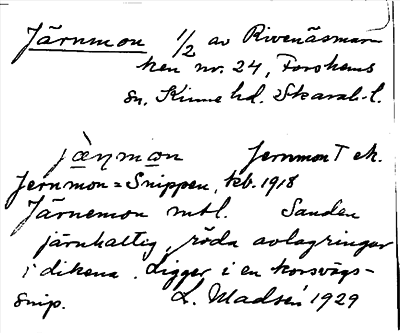 Järnmon 1/2 av Rivenäsmar-
ken nr. 24, Forshems
sn. Kinne hd. Skarab. l.
jæ̀ṇmon Jernmon T ek.
Jernmon = Snippen, kb. 1918
Järnemon mtl. Sanden
järnhaltig, röda avlagringar
i dikena. Ligger i en korsvägs-
snip. L. Madsén 1929